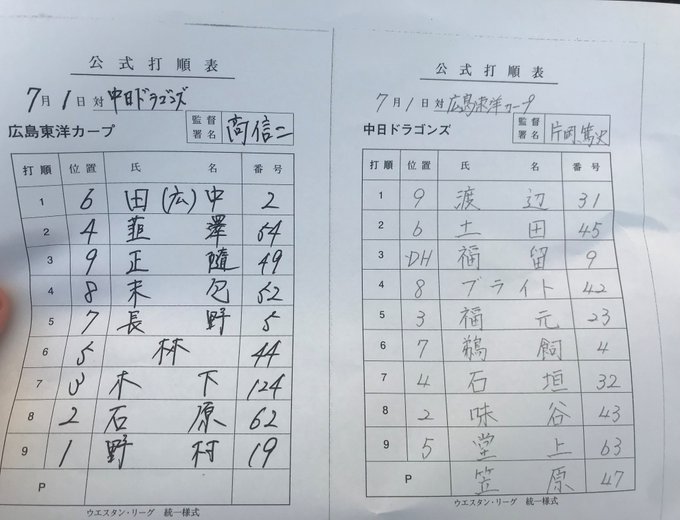 公式打順表
7月1日対中日ドラゴンズ
広島東洋カープ 監督署名 高信二
打順 位置 氏名 番号
1 6 田(広)中 2
2 4 韮澤 54
3 9 正隨 49
4 8 末包 52
5 7 長野 5
6 5 林 44
7 3 木下 124
8 2 石原 62
9 1 野村 19
P
ウエスタン・リーグ 統一様式
公式打順表
7月1日対広島東洋カープ
中日ドラゴンズ 監督署名 片岡篤史
打順 位置 氏名 番号
1 9 渡辺 31
2 6 土田 45
3 DH 福留 9
4 8 ブライト 42
5 3 福元 23
6 7 鵜飼 4
7 4 石垣 32
8 2 味谷 43
9 5 堂上 63
P 笠原 47
ウエスタン・リーグ 統一様式